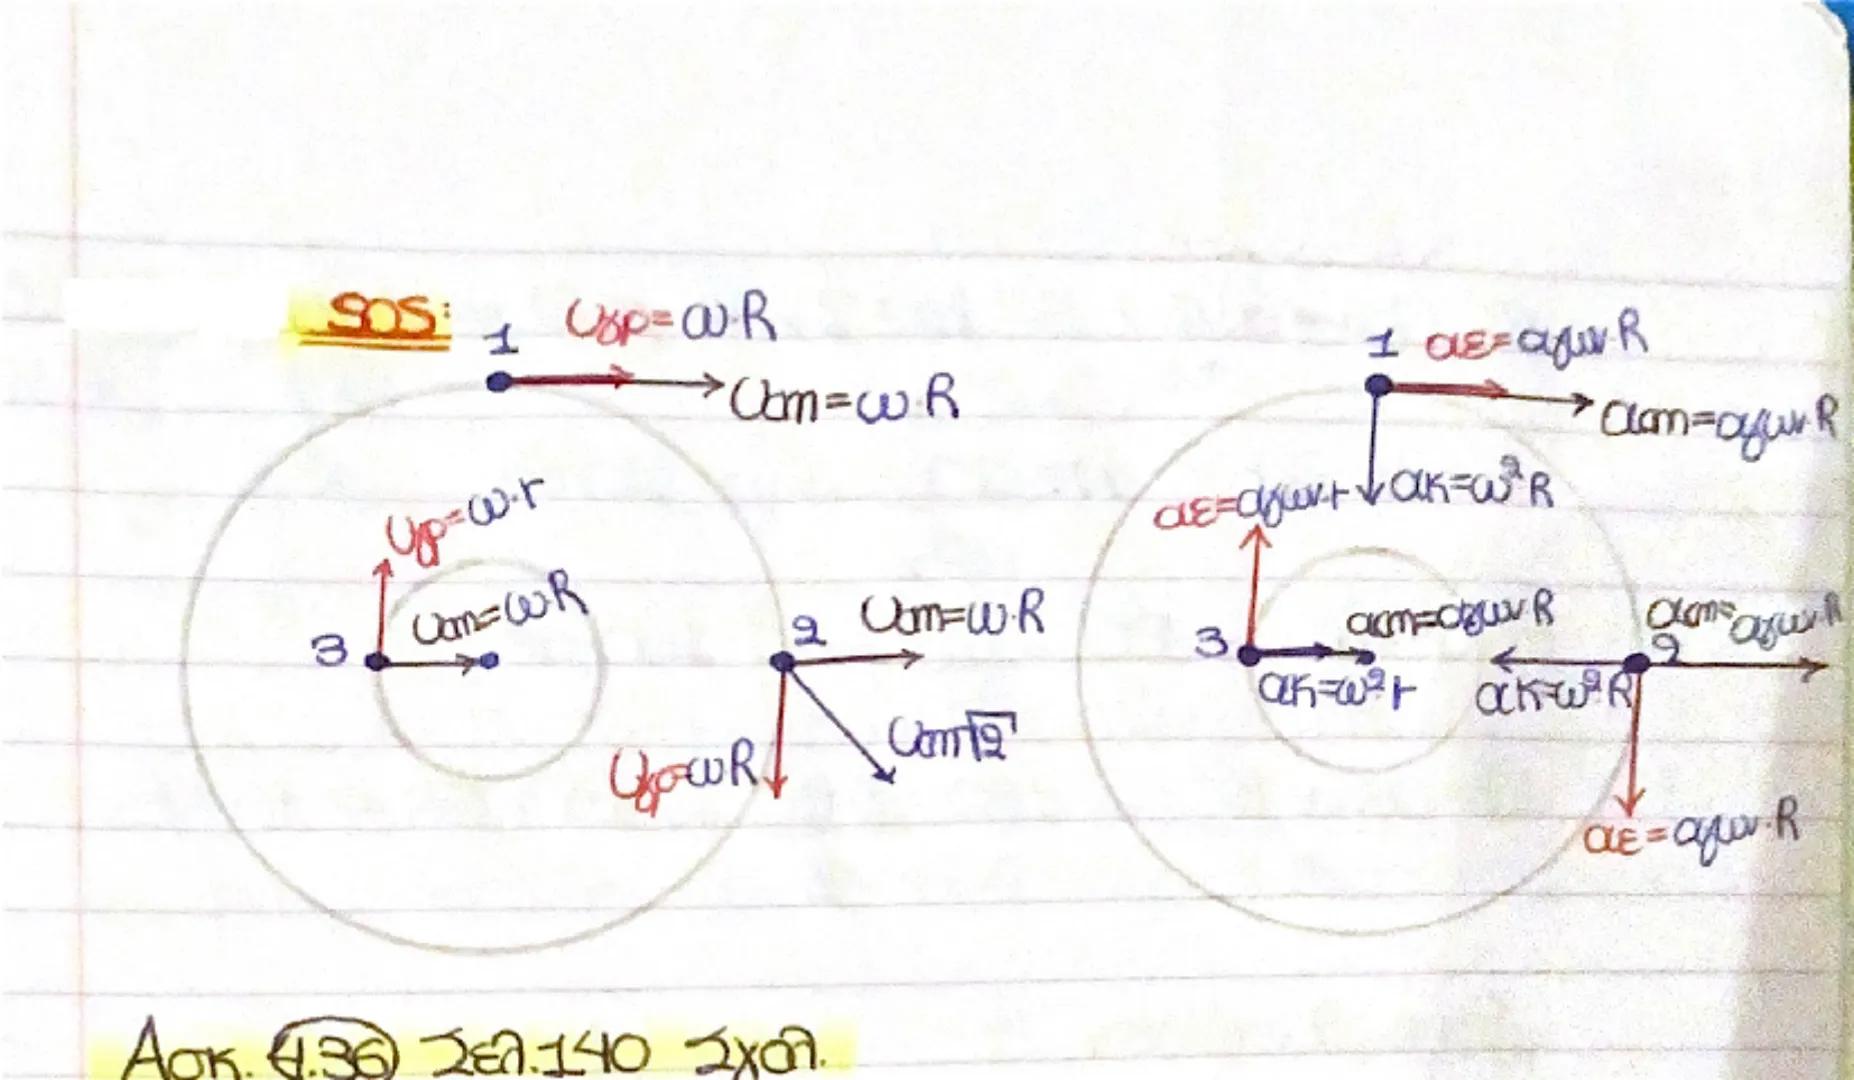 SOS:
1 υγρ=ω·R
υcm=ω·R
υγρ=ω·r
υcm=ω·R
3
2 υcm=ω·R
υγρ=ωR
υcm√2
1 αε=αγων·R
αcm=αγων·R
ακ=ω²R
αε=αγων·r
3 αcm=αγων·R
ακ=ω²r
2 αcm=αγων·R
ακ=ω²R
αε=αγων·R
Ασκ. 4.36 Σελ.140 Σχολ.